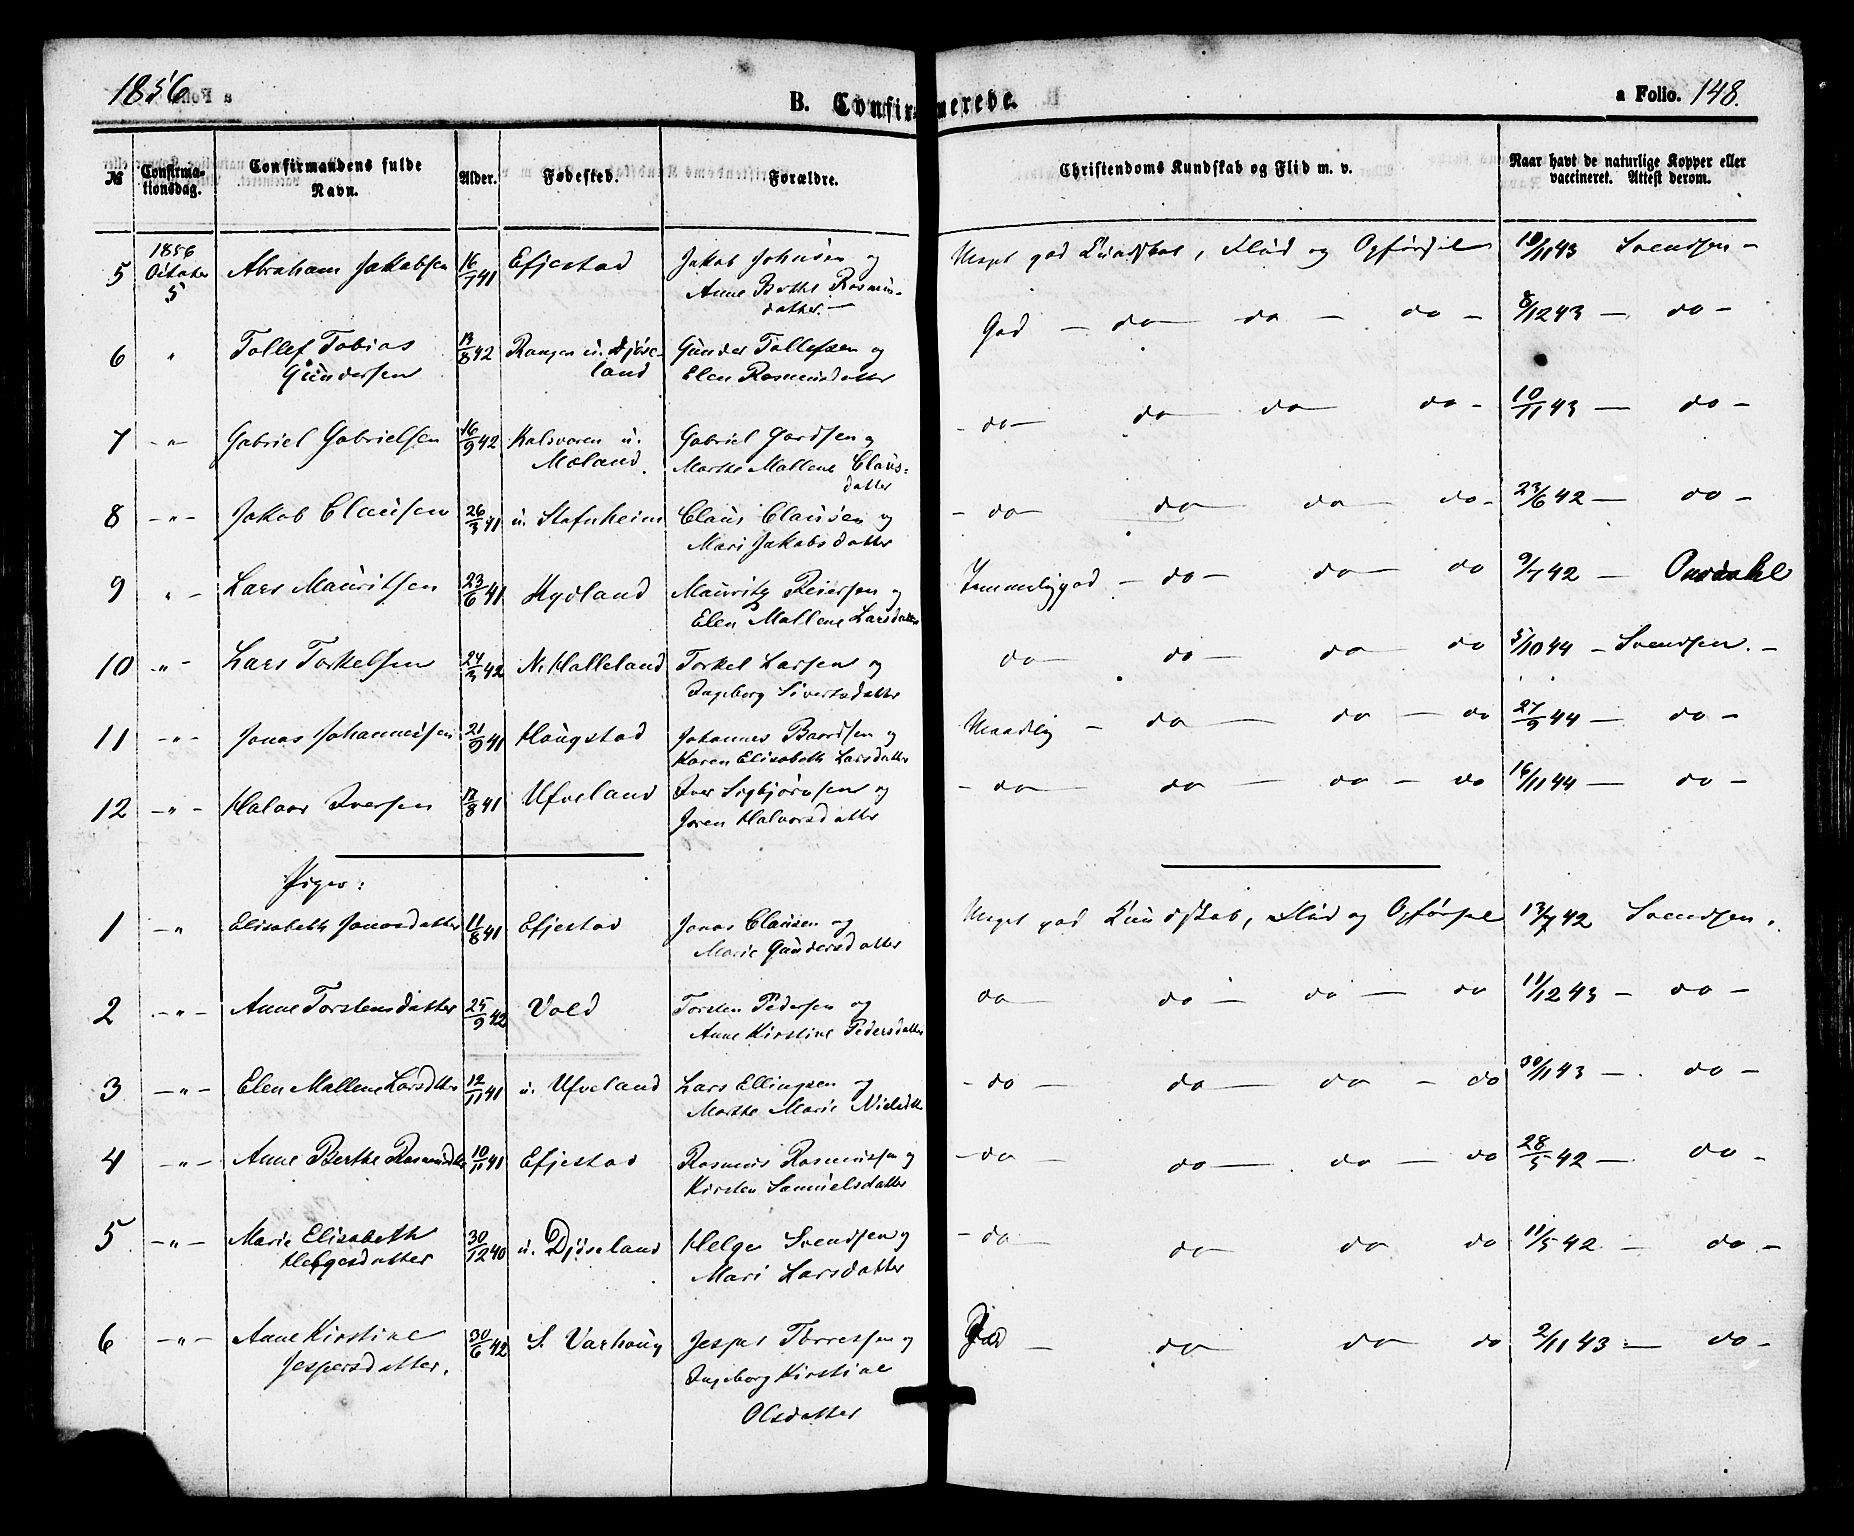 1856
B. Confirmerede.
a Folio. 148.
№ Confirmationsdag. Confirmandens fulde Navn. Alder. Fødested. Forældre. Christendoms Kundskab og Flid m. v. Naar havt de naturlige Kopper eller vaccineret. Attest derom.
5 1856 October 5 Abraham Jakobsen 16/7 41 Efjestad Jakob Johnsen og Meget god Kundskab, Flid og Opførsel 10/11 43 Svendsen -
Anne Berthe Rasmus-
datter. -
6 " Tollef Tobias 13/8 42 u. Djøse- Gunder Tollefsen og God - do - do - do - 8/12 43 - do -
Gundersen land Elen Rasmusdatter
7 - " - Gabriel Gabrielsen 16/9 42 u. Gabriel Gardsen og - do - do - do - do - 10/11 43 - do -
Mæland. Marthe Mallene Claus-
datter
8 - " - Jakob Clausen 26/3 41 u. Stafnheim Claus Clausen og - do - do - do - do - 23/6 42 - do -
Mari Jakobsdatter
9 " - Lars Mauritsen 23/6 41 Hydland Mauritz Reiersen og Temmelig god - do - do - do 9/7 42 -
Elen Mallene Larsdatter
10 " - Lars Torkelsen 24/3 42 N. Halleland Torkel Larsen og do - do - do - do 5/10 44 - Svendsen. -
Ingeborg Sivertsdatter
11 - " - Jonas Johannessen 21/9 41 Haugstad Johannes Baardsen og Maadelig - do - do - do 27/9 44 - do -
Karen Elisabeth Larsdatter
12 - " - Halvor Iversen 17/8 41 Ufveland Iver Sigbjørnsen og - do - do - do - do 16/11 44 - do -
Joren Halvorsdatter
Piger:
1 - " Elisabeth Jonasdatter 11/8 41 Efjestad Jonas Clausen og Meget god Kundskab, Flid og Opførsel 13/7 42 Svendsen.
Marie Gundersdatter
2 - " - Anne Torstensdatter 25/9 42 Vold Torsten Pedersen og do - do - do - do 11/12 43 - do -
Anne Kirstine Pedersdatter
3 - " - Elen Mallene Larsdtter 12/11 41 u. Ufveland Lars Ellingsen og - do - do - do - do 30/11 43 - do -
Marthe Marie Nielsdtt
4 - " - Anne Berthe Rasmusdtr 10/11 41 Efjestad Rasmus Rasmussen og - do - do - do - do 28/5 42 - do -
Kirsten Samuelsdatter
5 - " - Marie Elisabeth 30/12 40 u. Djøseland Helge Svendsen og - do - do do do 11/5 42 - do -
Helgesdatter Mari Larsdatter
6 - " - Anne Kirstine 30/6 42 S. Varhoug Jesper Torresen og God - do do do 2/11 43 - do -
Jespersdatter. Ingeborg Kirstine
Olsdatter